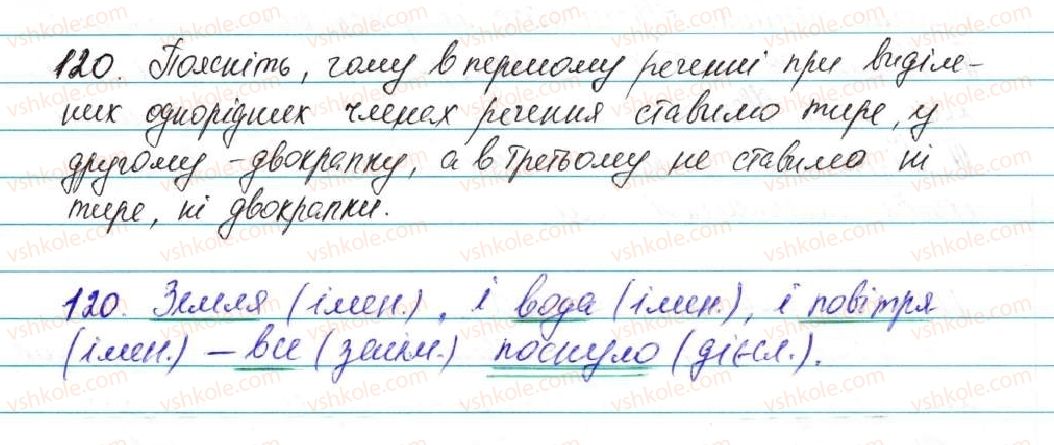 120. Поясніть, чому в першому реченні при виділе-
них однорідних членах речення ставимо тире, у
другому - двокрапку, а в третьому не ставимо ні
тире, ні двокрапки.
120. Земля (імен.), і вода (імен.), і повітря
(імен.) – все (займ.) поснуло (дієсл.).
vshkole.com